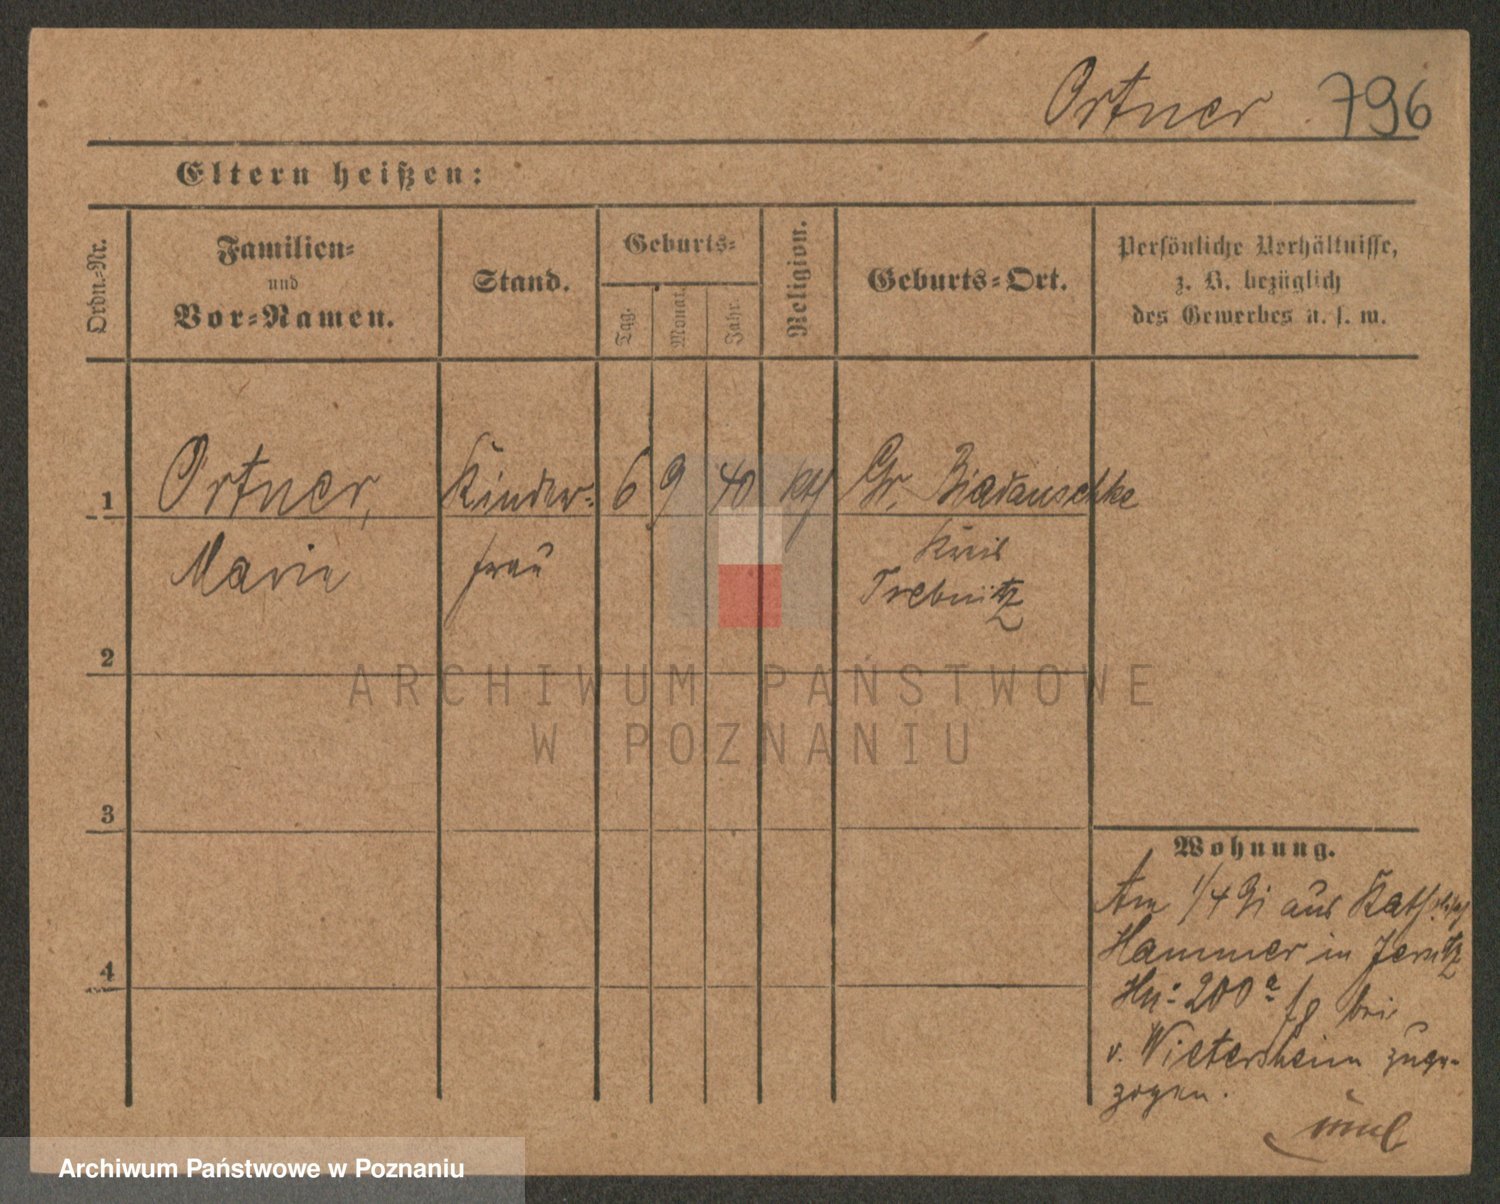 Ortner 796
Eltern heißen:
Ordn.-Nr.
Familien-
und
Vor-Namen.
Stand.
Geburts-
Tag.
Monat.
Jahr.
Religion.
Geburts-Ort.
Persönliche Verhältnisse,
z. B. bezüglich
des Gewerbes u. s. w.
1 Ortner, Kinder- 6 9 40 kth Gr. Biadauschke
Marie frau Kreis
Trebnitz
2
3
4
Wohnung.
Am 1/4 91 aus Kathlisch
Hammer in Jersitz
Hn: 200a bei
v. Wietersheim zuge-
zogen.
ARCHIWUM PAŃSTWOWE
W POZNANIU
Archiwum Państwowe w Poznaniu